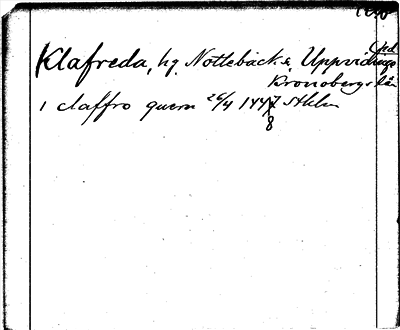 Klafreda, hg. Nottebäcks, Uppvidinge hd
Kronobergs län
i claffro quern 26/4 1447 Sthlm
8